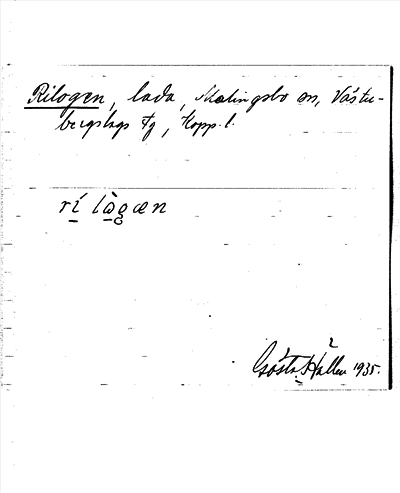 Rilogen, lada, Malingsbo sn, Väster-
bergslags tg, Kopp. l.
rí lògæn
Gösta Hallen 1935.